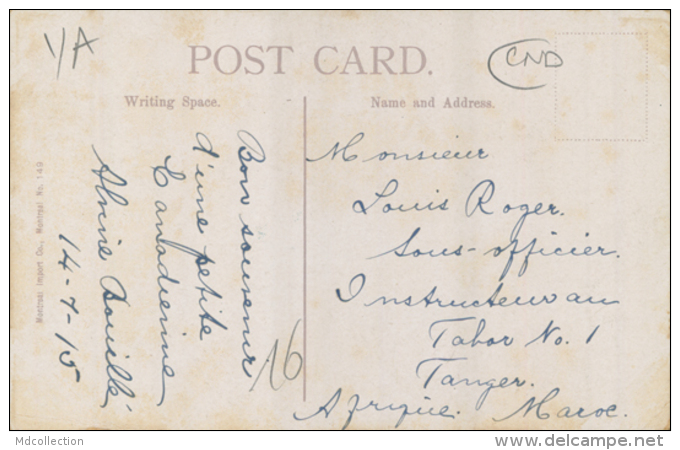 1/A
POST CARD.
CND
Writing Space.
Name and Address.
Bon souvenir
d'une petite
Canadienne
14-7-15
16
Monsieur
Louis Roger.
Sous-officier.
Instructeur au
Tabor No. 1
Tanger.
Afrique. Maroc.
Montreal Import Co., Montreal No. 149
Mdcollection
www.delcampe.net